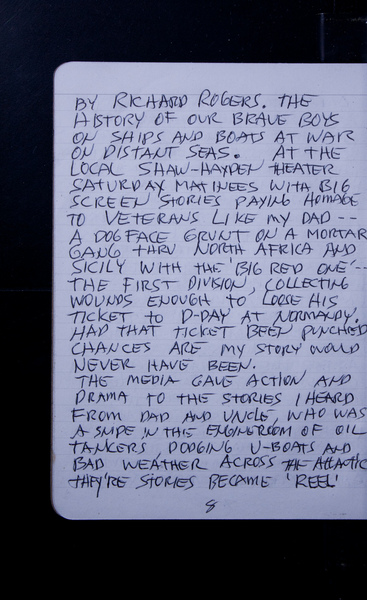 BY RICHARD ROGERS. THE
HISTORY OF OUR BRAVE BOYS
ON SHIPS AND BOATS AT WAR
ON DISTANT SEAS. AT THE
LOCAL SHAW-HAYDEN THEATER
SATURDAY MATINEES WITH BIG
SCREEN STORIES PAYING HOMAGE
TO VETERANS LIKE MY DAD --
A DOGFACE GRUNT ON A MORTAR
GANG THRU NORTH AFRICA AND
SICILY WITH THE 'BIG RED ONE' --
THE FIRST DIVISION, COLLECTING
WOUNDS ENOUGH TO LOOSE HIS
TICKET TO D-DAY AT NORMANDY.
HAD THAT TICKET BEEN PUNCHED
CHANCES ARE MY STORY WOULD
NEVER HAVE BEEN.
THE MEDIA GAVE ACTION AND
DRAMA TO THE STORIES I HEARD
FROM DAD AND UNCLE, WHO WAS
A SNIPE IN THE ENGINEROOM OF OIL
TANKERS, DODGING U-BOATS AND
BAD WEATHER ACROSS THE ATLANTIC
THEY'RE STORIES BECAME 'REEL'
8